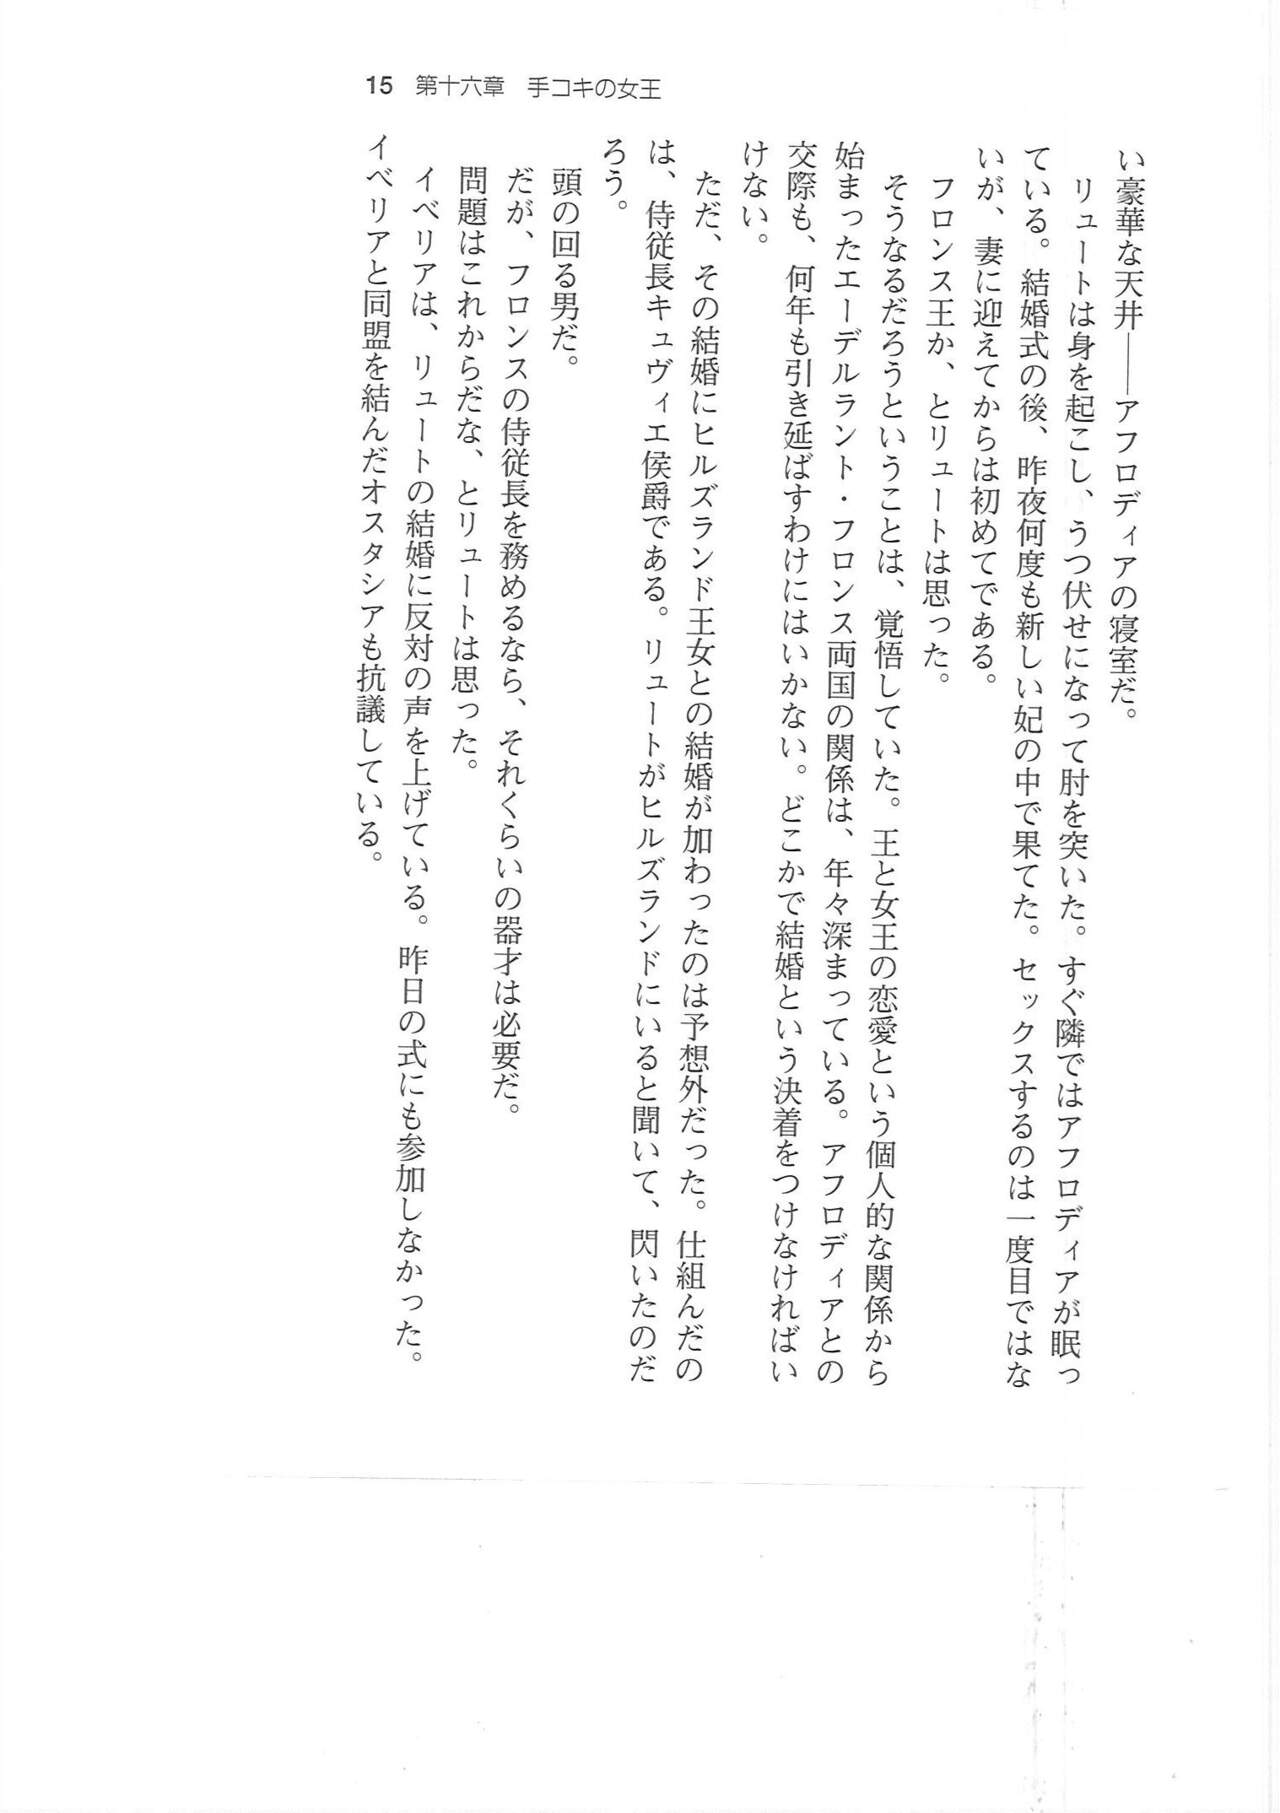 15 第十六章 手コキの女王
い豪華な天井――アフロディアの寝室だ。
リュートは身を起こし、うつ伏せになって肘を突いた。すぐ隣ではアフロディアが眠っ
ている。結婚式の後、昨夜何度も新しい妃の中で果てた。セックスするのは一度目ではな
いが、妻に迎えてからは初めてである。
フロンス王か、とリュートは思った。
そうなるだろうということは、覚悟していた。王と女王の恋愛という個人的な関係から
始まったエーデルラント・フロンス両国の関係は、年々深まっている。アフロディアとの
交際も、何年も引き延ばすわけにはいかない。どこかで結婚という決着をつけなければい
けない。
ただ、その結婚にヒルズランド王女との結婚が加わったのは予想外だった。仕組んだの
は、侍従長キュヴィエ侯爵である。リュートがヒルズランドにいると聞いて、閃いたのだ
ろう。
頭の回る男だ。
だが、フロンスの侍従長を務めるなら、それくらいの器才は必要だ。
問題はこれからだな、とリュートは思った。
イベリアは、リュートの結婚に反対の声を上げている。昨日の式にも参加しなかった。
イベリアと同盟を結んだオスタシアも抗議している。